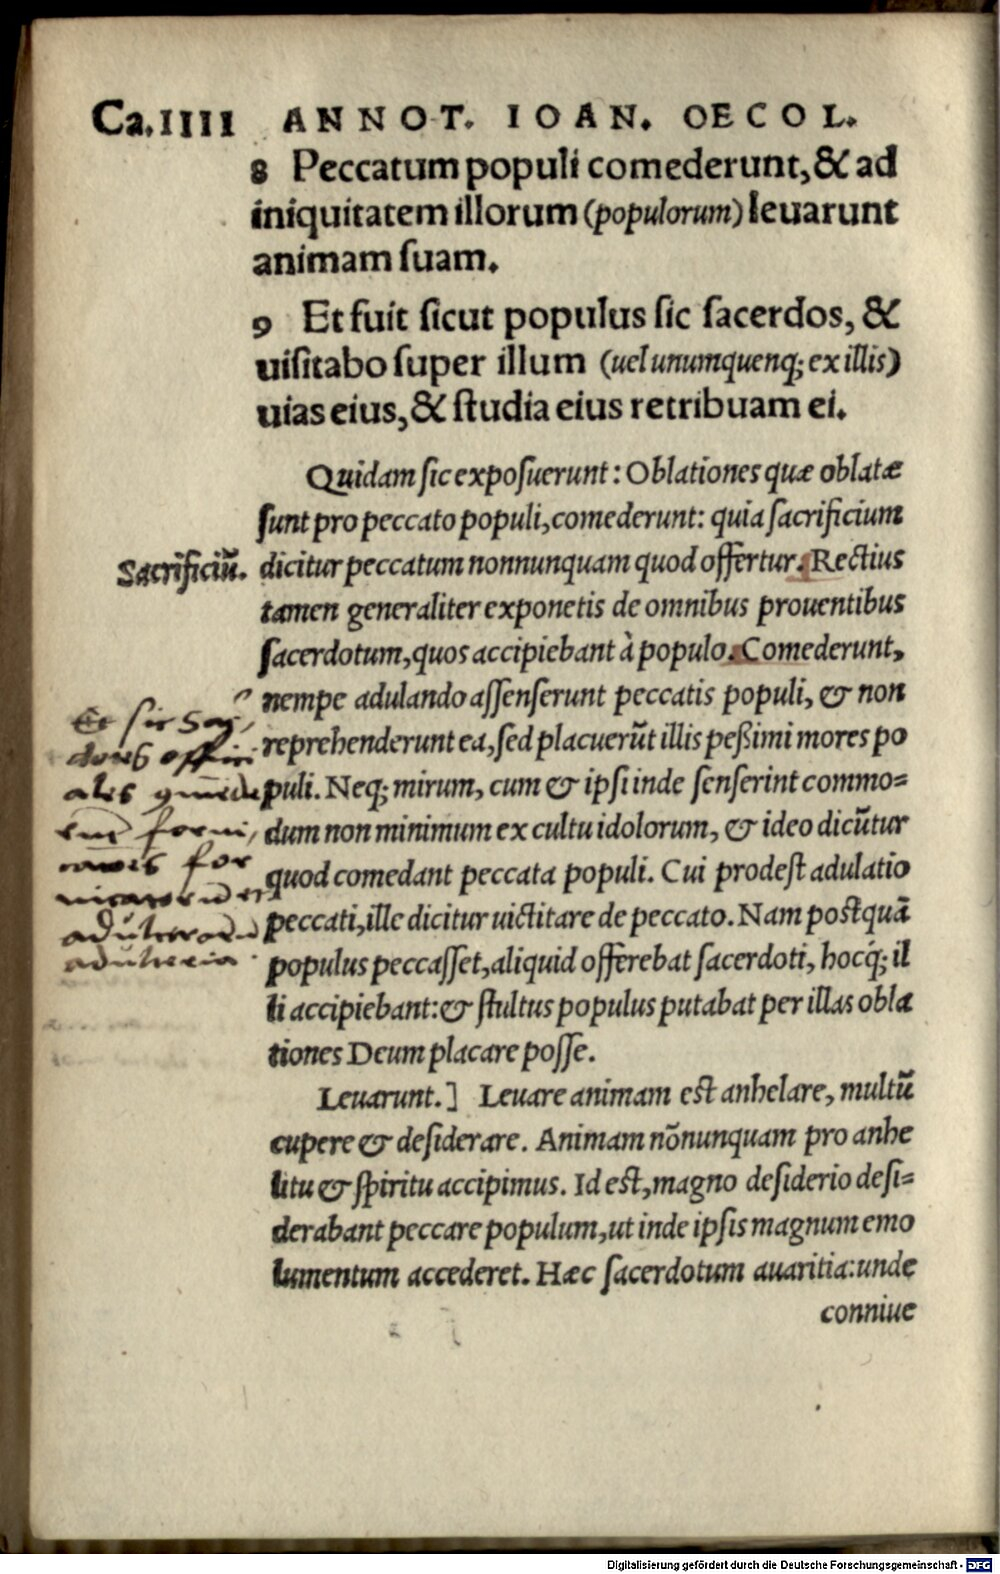 Ca.IIII ANNOT. IOAN. OECOL.
8 Peccatum populi comederunt, & ad
iniquitatem illorum (populorum) leuarunt
animam suam.
9 Et fuit sicut populus sic sacerdos, &
uisitabo super illum (uel unumquenq; ex illis)
uias eius, & studia eius retribuam ei.
Quidam sic exposuerunt: Oblationes quæ oblatæ
sunt pro peccato populi, comederunt: quia sacrificium
Sacrificiũ.
dicitur peccatum nonnunquam quod offertur. Rectius
tamen generaliter exponetis de omnibus prouentibus
sacerdotum, quos accipiebant à populo. Comederunt,
nempe adulando assenserunt peccatis populi, & non
reprehenderunt ea, sed placuerũt illis peßimi mores po
puli. Neq; mirum, cum & ipsi inde senserint commo=
dum non minimum ex cultu idolorum, & ideo dicũtur
quod comedant peccata populi. Cui prodest adulatio
peccati, ille dicitur uictitare de peccato. Nam postquã
populus peccasset, aliquid offerebat sacerdoti, hocq́; il
li accipiebant: & stultus populus putabat per illas obla
tiones Deum placare posse.
Et sic
offici
ales
for
adulteria
Leuarunt.] Leuare animam est anhelare, multũ
cupere & desiderare. Animam nõnunquam pro anhe
litu & spiritu accipimus. Id est, magno desiderio desi=
derabant peccare populum, ut inde ipsis magnum emo
lumentum accederet. Hæc sacerdotum auaritia: unde
conniue
Digitalisierung gefördert durch die Deutsche Forschungsgemeinschaft - DFG